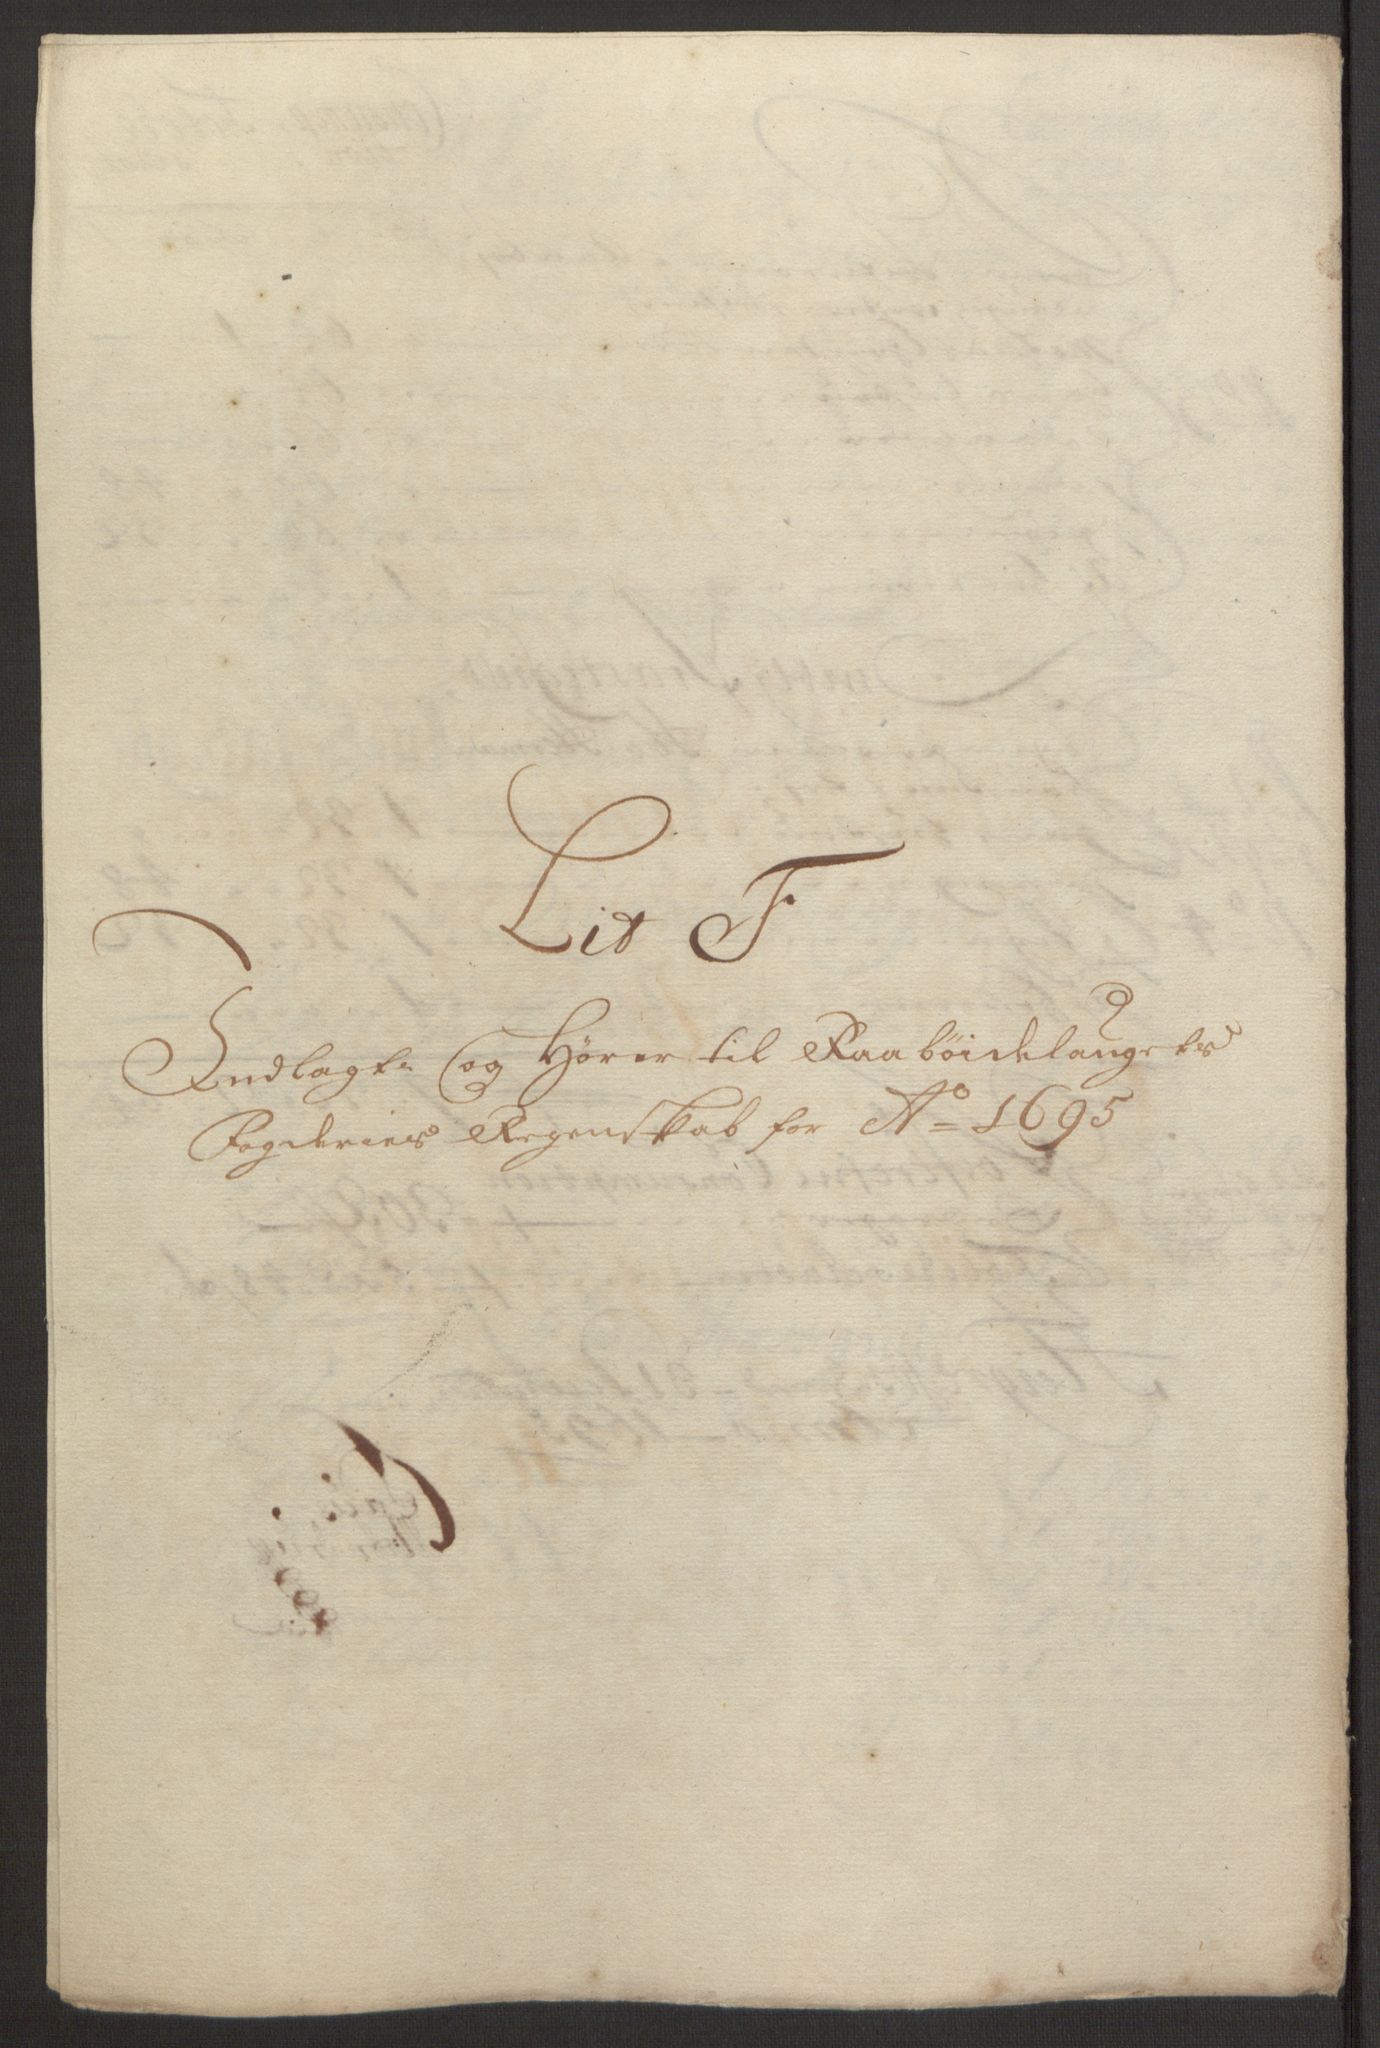 Lit F
Indlagt og Hörer til Raaböidelaugets
Fogderies Regenskab for Ao 1695